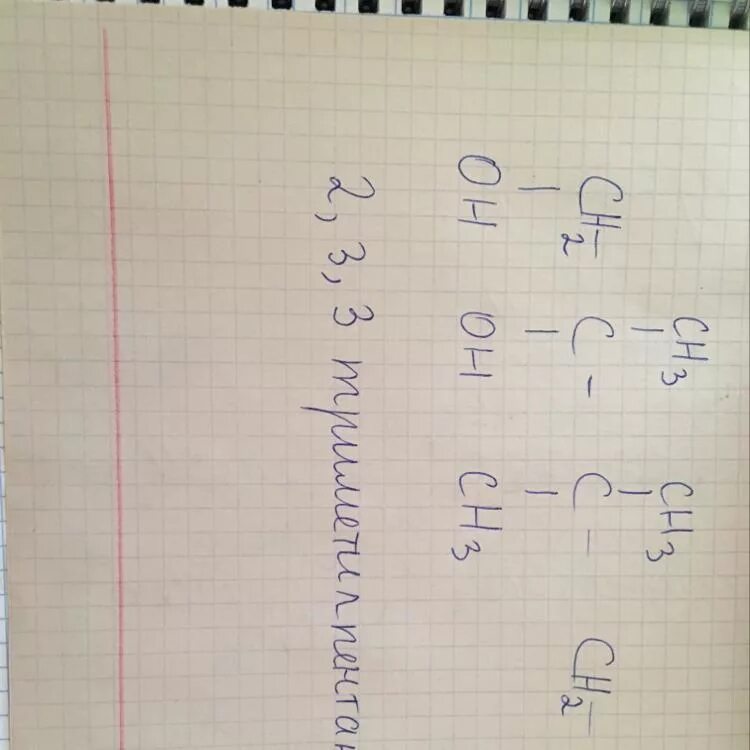 CH3 CH3
CH2 – C – C – CH2 –
OH OH CH3
2, 3, 3 триметилпентан